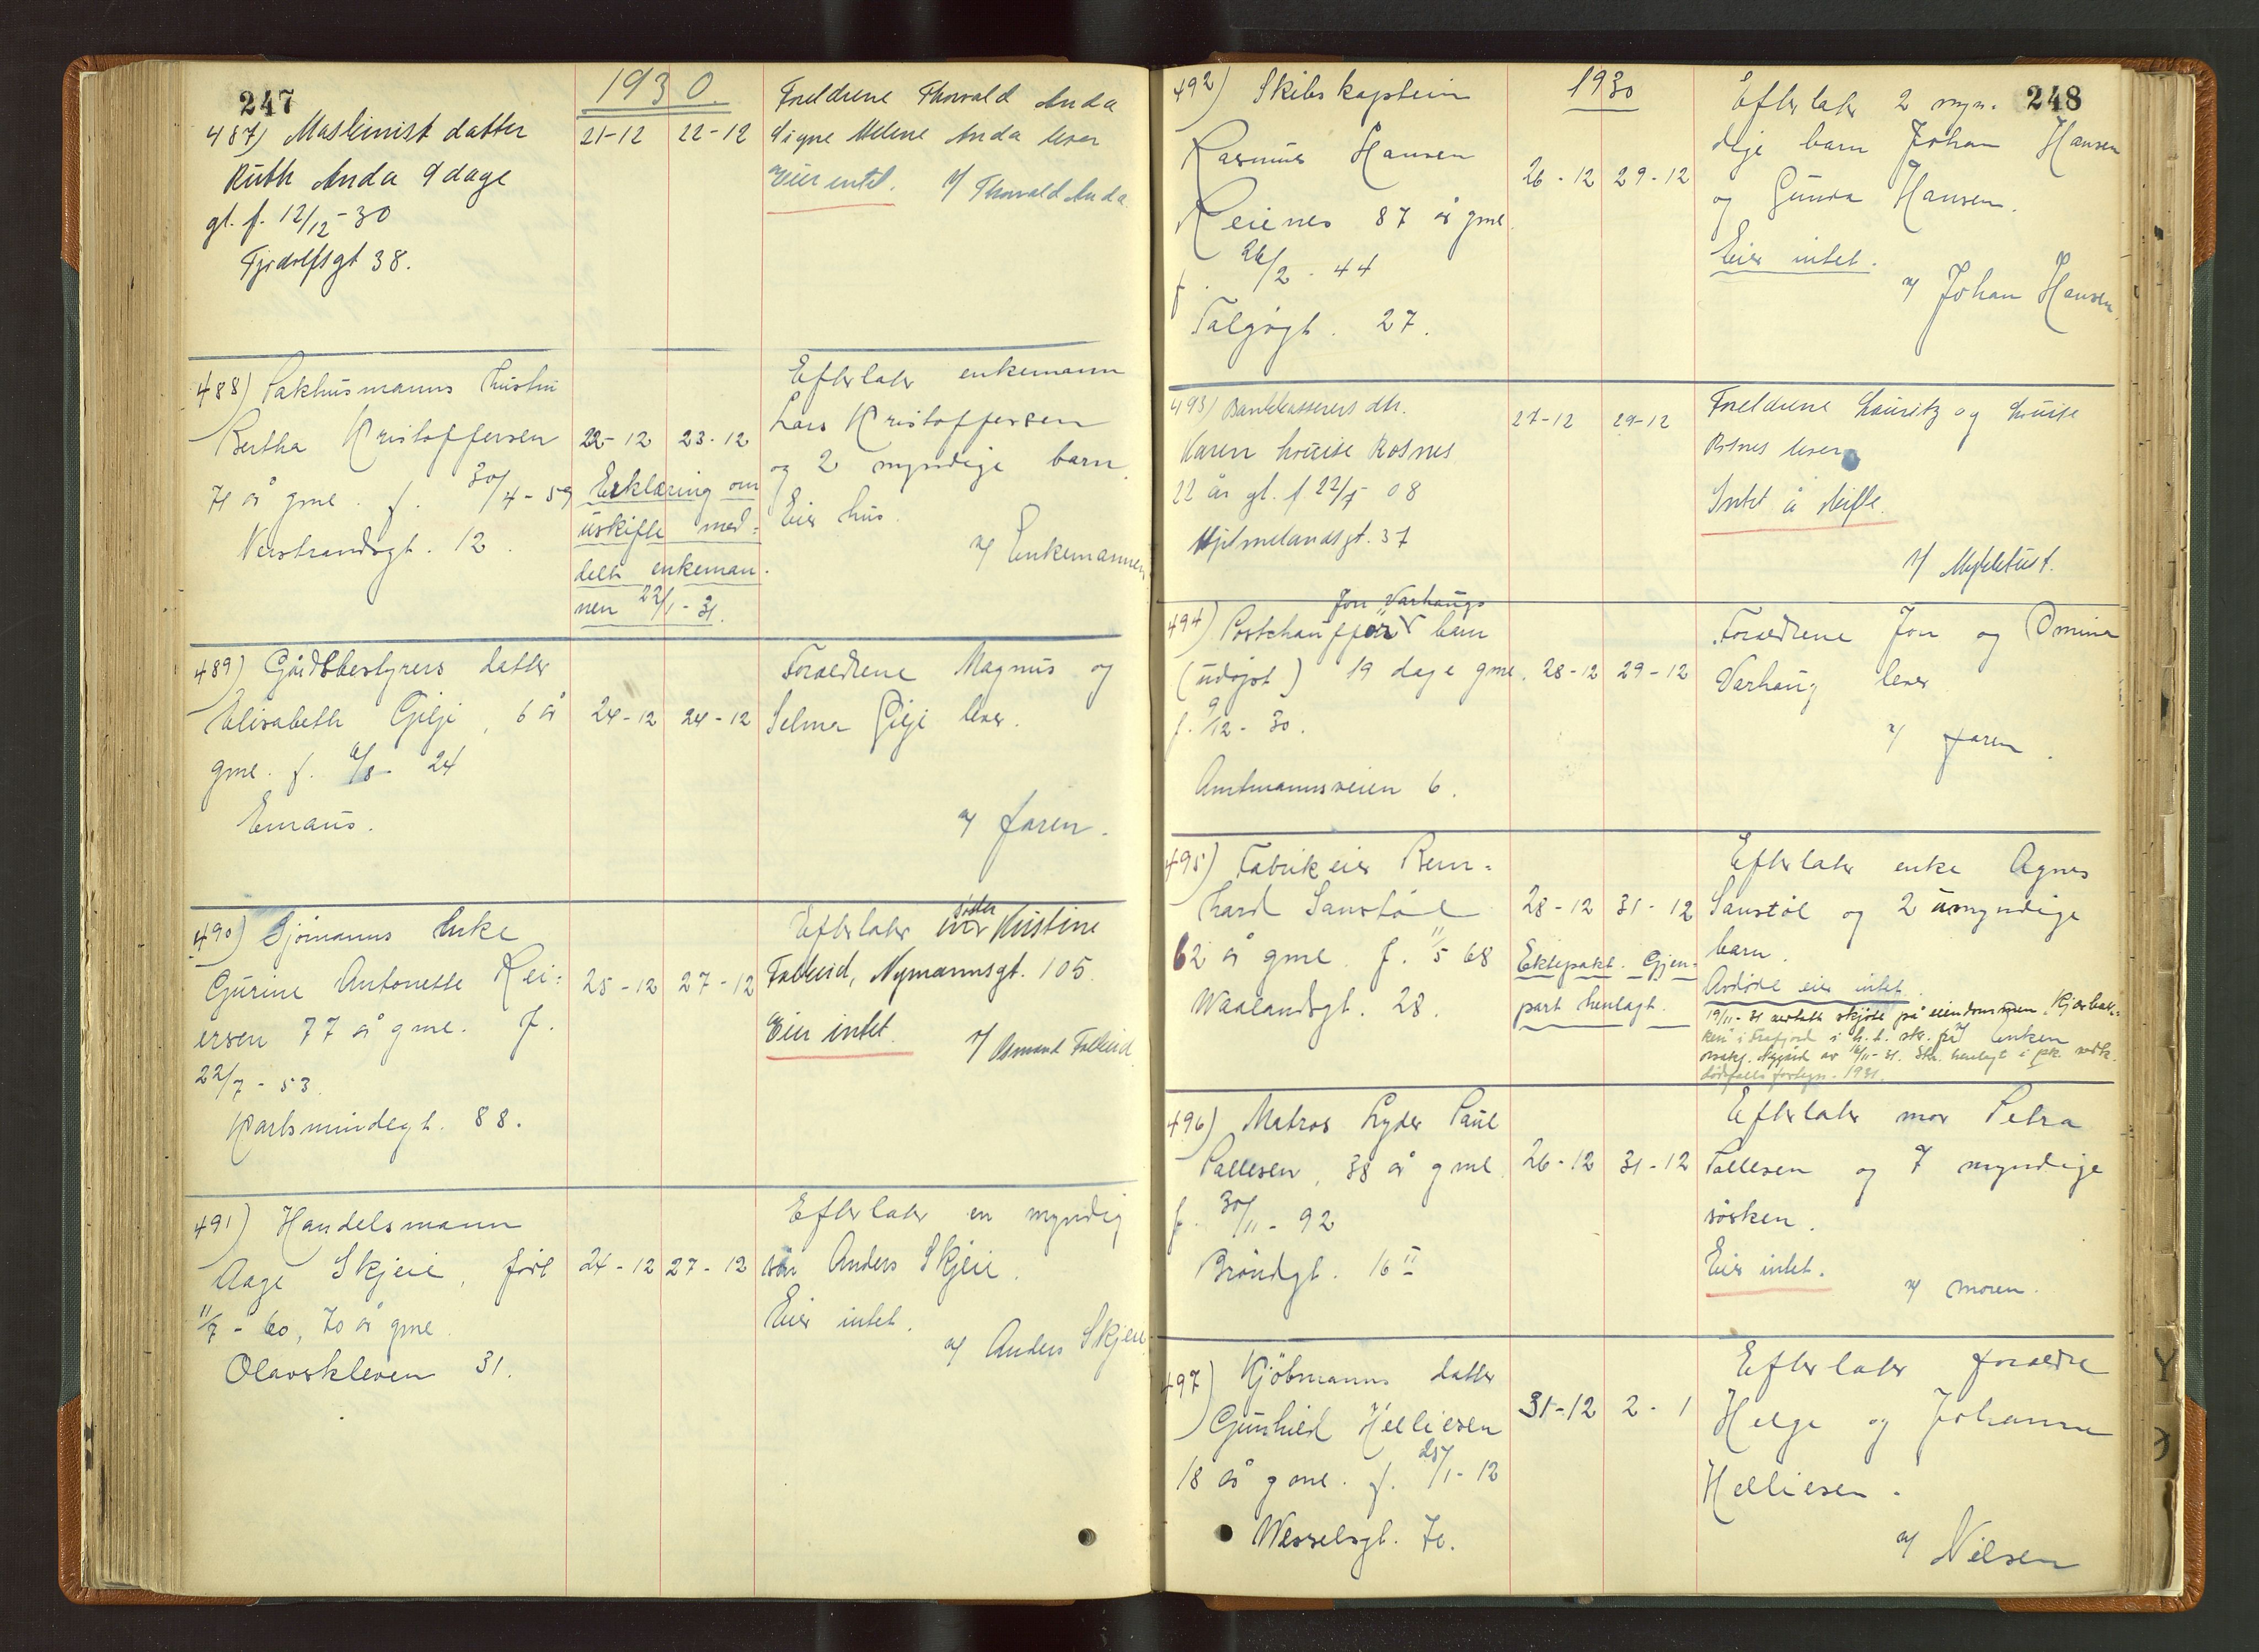 247
1930.
487) Maskinist datter
Ruth Anda 9 dage
gl. f. 12/12-30
Fjordolfsgt 38.
21-12 22-12
Foreldrene Thorvald Anda
Signe Helene Anda lever
Eier intet. v/ Thorvald Anda
488) Pakhusmanns hustru
Bertha Kristoffersen
71 år gml. f. 30/4-59
Verstrandsgt. 12.
22-12 23-12
Erklæring om
uskifte med-
delt enkeman-
nen 22/1-31.
Efterlater enkemann
Lars Kristoffersen
og 2 myndige barn.
Eier hus.
v/ Enkemannen
489) Gårdsbestyrers datter
Elisabeth Gilje, 6 år
gml. f. 6/8-24
Emaus.
24-12 24-12
Foreldrene Magnus og
Selma Gilje lever.
v/ faren.
490) Sjømanns enke
Gurine Antonette Rei-
ersen 77 år gml. f.
22/7-53.
Karlsmindegt. 88.
25-12 27-12
søster
Efterlater Kristine
Falkeid, Nymannsgt. 105.
Eier intet.
v/ Osmund Falkeid
491) Handelsmann
Aage Skjeie, født
11/7-60, 70 år gml.
Olavskleven 31.
24-12 27-12
Efterlater en myndig
søn Anders Skjeie.
Eier intet.
v/ Anders Skjeie
248
1930
492) Skibskaptein
Rasmus Hansen
Reienes 87 år gml.
f. 26/2-44
Talgøgt. 27.
26-12 29-12
Efterlater 2 myn-
dige barn Johan Hansen
og Gunda Hansen.
Eier intet.
v/ Johan Hansen.
493) Bankkasserers dtr.
Karen Louise Rosnes
22 år gl. f 22/5 08
Hjelmelandsgt. 37
27-12 29-12
Foreldrene Lauritz og Louise
Rosnes lever
Intet å skifte.
v/ Mykletust.
Jon Varhaugs
494) Postchauffør barn
(udøpt) 19 dage gml.
f. 9/12-30.
Amtmannsveien 6.
28-12 29-12
Foreldrene Jon og Omina
Varhaug lever
v/ faren.
495) Fabrikeier Rein-
hard Sanstøl
62 år gml. f. 11/5 68
Waalandsgt. 28.
28-12 31-12
Ektepakt. Gjen-
part henlagt.
Efterlater enke Agnes
Sanstøl og 2 umyndige
barn.
Avdøde eier intet.
19/11-31 utstedt skjøte på eiendommen Kjærbak-
ken i Frafjord i h. t. skr. fra v/ enken
Nygård av 16/11-31. Skr. henlagt i pk. vedk.
dødsfalls fortegn. 1931.
496) Matros Lyder Paul
Pallesen, 38 år gml.
f. 30/11-92
Brøndgt. 16 II
26-12 31-12
Efterlater mor Petra
Pallesen og 7 myndige
søsken.
Eier intet.
v/ moren.
497) Kjøbmanns datter
Gunhild Helliesen
18 år gml. f. 25/1-12
Wesselsgt. 70.
31-12 2-1
Efterlater foreldre
Helge og Johanne
Helliesen.
v/ Nilsen